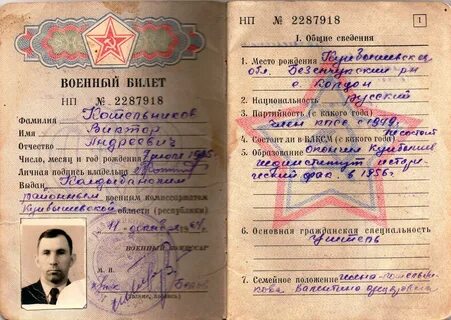 ВОЕННЫЙ БИЛЕТ
НП № 2287918
Фамилия Котельников
Имя Виктор
Отчество Андреевич
Число, месяц и год рождения
Личная подпись владельца
Выдан
районным военным комиссариатом
Куйбышевской области (республики)
декабря
ВОЕННЫЙ КОМИССАР
М. П.
НП № 2287918
1
I. Общие сведения
1. Место рождения Куйбышевская
обл. Безенчукский р-н
с.
2. Национальность русский
3. Партийность (с какого года)
член КПСС с
4. Состоит ли в ВЛКСМ (с какого года) не состоит
5. Образование окончил
пединститут истори-
ческий фак. в 1956 г.
6. Основная гражданская специальность
учитель
7. Семейное положение жена - Котельни-
кова Валентина